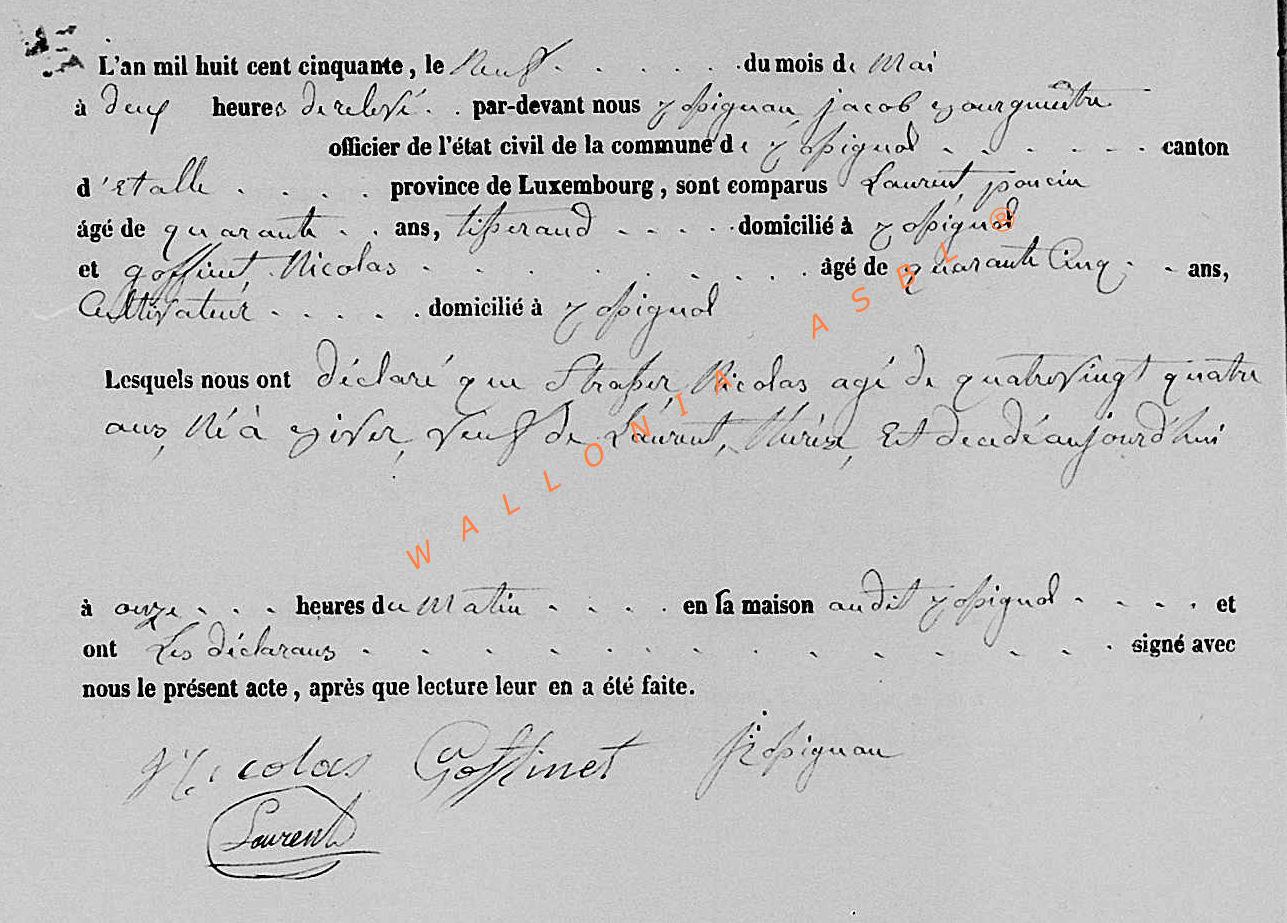 L'an mil huit cent cinquante, le Neuf . . . . . . du mois de Mai
à deux heures de relevé . . par-devant nous Rossignon, jacob Bourgmêtre
officier de l'état civil de la commune de Rossignol . . . . . . canton
d'Etalle . . . . province de Luxembourg, sont comparus Laurent, poncin
âgé de quarante . . ans, tisserand . . . . . domicilié à Rossignol
et goffinet Nicolas . . . . . . . . . âgé de quarante Cinq . . ans,
Cultivateur . . . . . domicilié à Rossignol
Lesquels nous ont déclaré que Strasser, Nicolas agé de quatrevingt quatre
ans, Né à Biver, veuf de Laurent, thérèse, Est decedé aujourd'hui
à onze . . . heures du Matin . . . . en sa maison audit Rossignol . . . . et
ont Les déclarans . . . . . . . . . . . . . signé avec
nous le présent acte, après que lecture leur en a été faite.
Nicolas Goffinet JRossignon
Laurent
WALLONIA ASBL ®